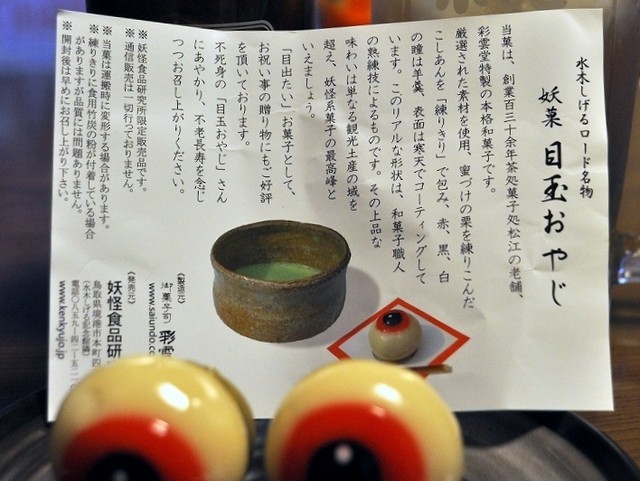 水木しげるロード名物
妖菓 目玉おやじ
当菓は、創業百三十余年茶処菓子処松江の老舗、
彩雲堂特製の本格和菓子です。
厳選された素材を使用、蜜づけの栗を練りこんだ
こしあんを「練りきり」で包み、赤、黒、白
の瞳は羊羹、表面は寒天でコーティングして
います。このリアルな形状は、和菓子職人
の熟練技によるものです。その上品な
味わいは単なる観光土産の域を
超え、妖怪系菓子の最高峰と
いえましょう。
「目出たい」お菓子として、
お祝い事の贈り物にもご好評
を頂いております。
不死身の「目玉おやじ」さん
にあやかり、不老長寿を念じ
つつお召し上がりください。
※妖怪食品研究所限定販売品です。
※通信販売は一切行っておりません。
※当菓は運搬時に変形する場合があります。
※練りきりに食用竹炭の粉が付着している場合
がありますが品質には問題ありません。
※開封後は早めにお召し上がり下さい。
(製造元)
御菓子司 彩雲
www.saiundo.co
(発売元)
妖怪食品研
鳥取県境港市本町四
(水木しげる記念館横)
電話〇八五九-四二-五二
www.kenkyujo.jp